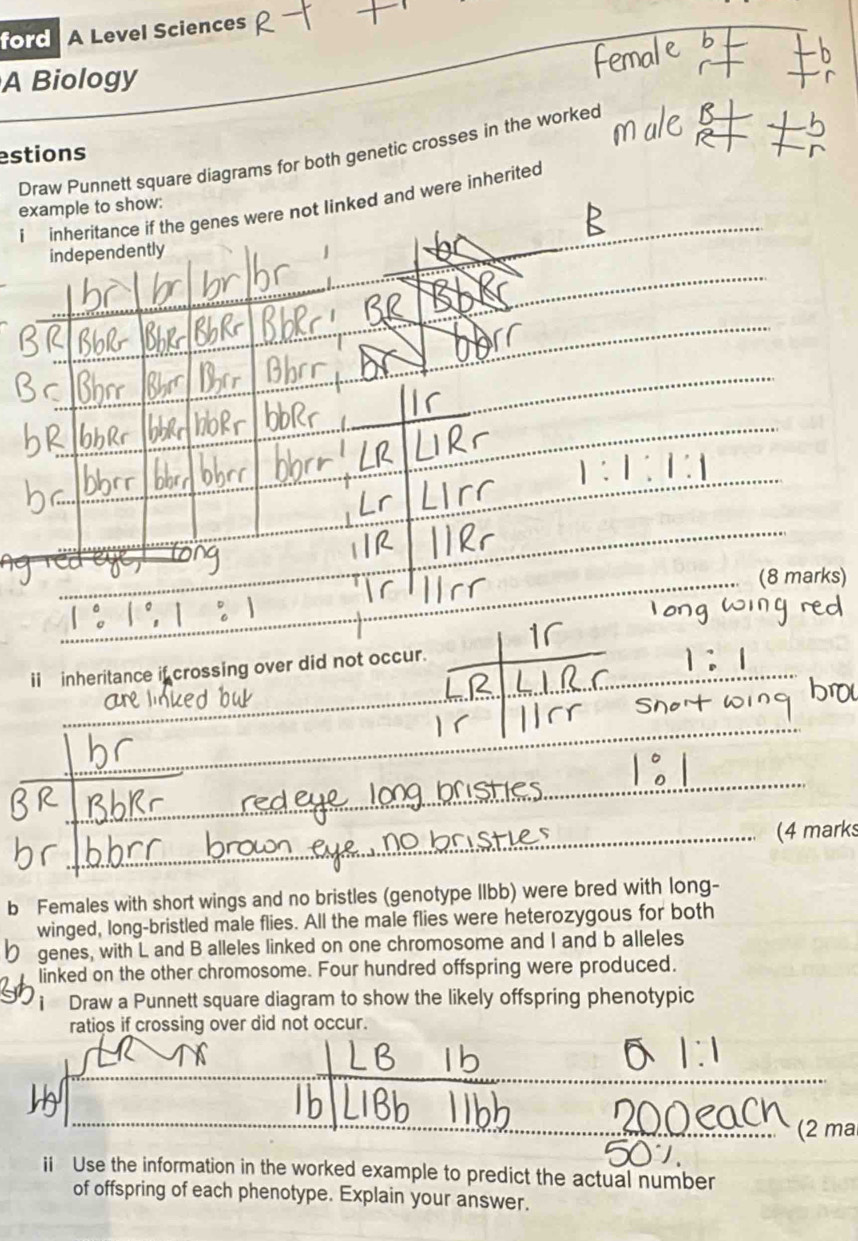 ford A Level Sciences R
A Biology
female b r b r
male B R b r
estions
Draw Punnett square diagrams for both genetic crosses in the worked
example to show:
i inheritance if the genes were not linked and were inherited
independently
B
br br br br
br
BR BbRr BbRr BbRr BbRr
BR BbRr
Br Bbrr Bbrr Bbrr Bbrr
br bbrr
bR bbRr bbRr bbRr bbRr
lr
LR LlRr
br bbrr bbrr bbrr bbrr
Lr Llrr 1:1:1:1
lR llRr
red eye, long
lr llrr
(8 marks)
1:1:1:1
long wing red
ii inheritance if crossing over did not occur.
are linked but
lr
LR LlRr 1:1
lr llrr short wing brow
br
BR BbRr red eye long bristles 1:1
br bbrr brown eye, no bristles
(4 marks
b Females with short wings and no bristles (genotype llbb) were bred with long-
winged, long-bristled male flies. All the male flies were heterozygous for both
b genes, with L and B alleles linked on one chromosome and l and b alleles
linked on the other chromosome. Four hundred offspring were produced.
i Draw a Punnett square diagram to show the likely offspring phenotypic
ratios if crossing over did not occur.
LB lb 1:1
lb LlBb llbb 200 each
(2 ma
50%
ii Use the information in the worked example to predict the actual number
of offspring of each phenotype. Explain your answer.